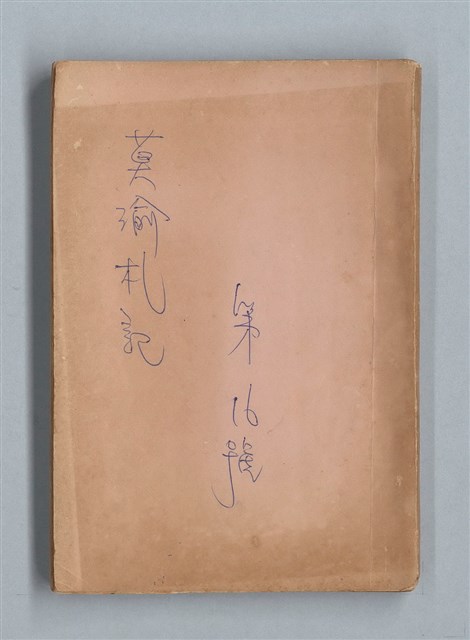 莫渝札記
第16號